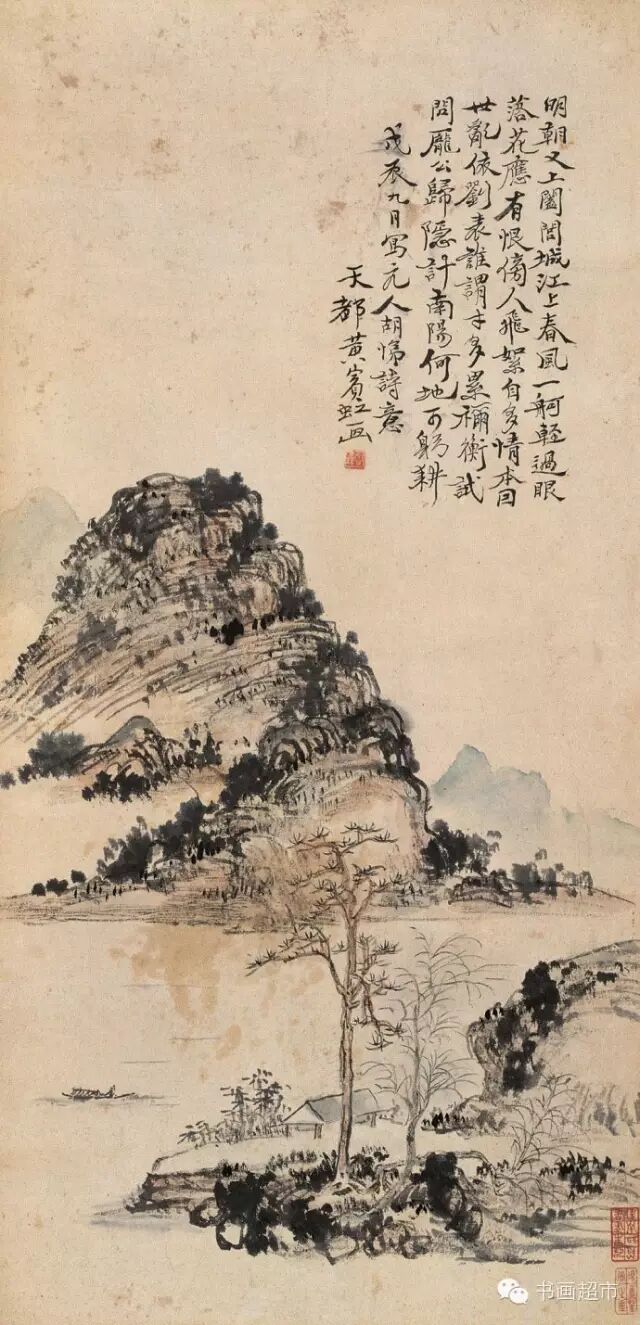 明朝又上闔閭城江上春風一舸輕過眼
落花應有恨傍人飛絮自多情本因
世亂依劉表誰謂才多累禰衡試
問龐公歸隱計南陽何地可躬耕
戊辰九月寫元人胡悌詩意
天都黃賓虹画
书画超市